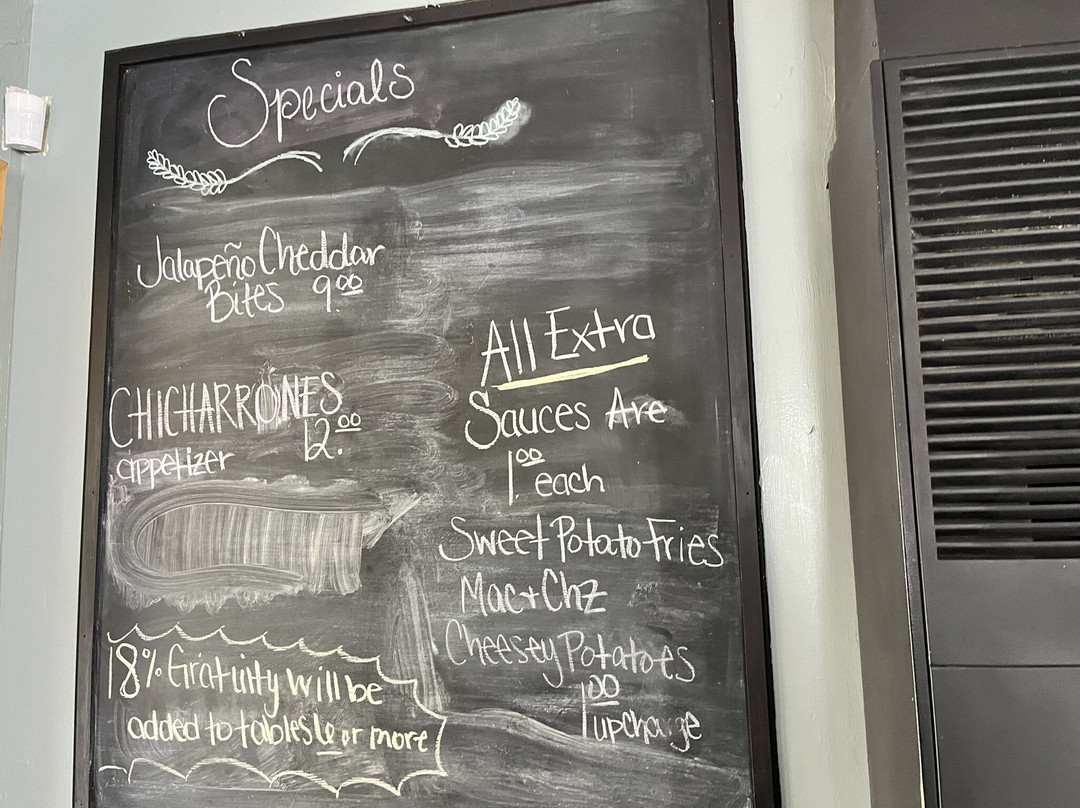 Specials
Jalapeño Cheddar
Bites 9.00
CHICHARRONES
12.00
appetizer
18% Gratuity will be
added to tables 6 or more
All Extra
Sauces Are
1.00 each
Sweet Potato Fries
Mac + Chz
Cheesey Potatoes
1.00
upcharge